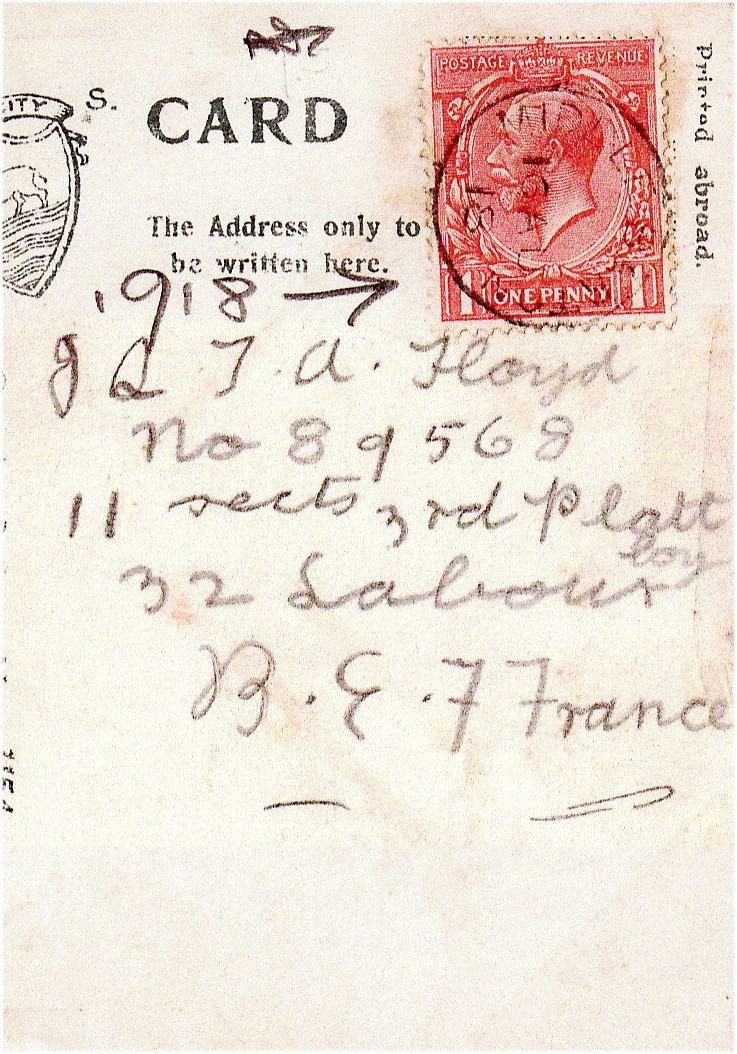 CITY S.
CARD
POSTAGE REVENUE
Printed abroad.
The Address only to
be written here.
1918 →
18
1 ONE PENNY 1
T. A. Floyd
No 89568
11 sects 3rd Platt
32 Labour Coy
B.E.F France